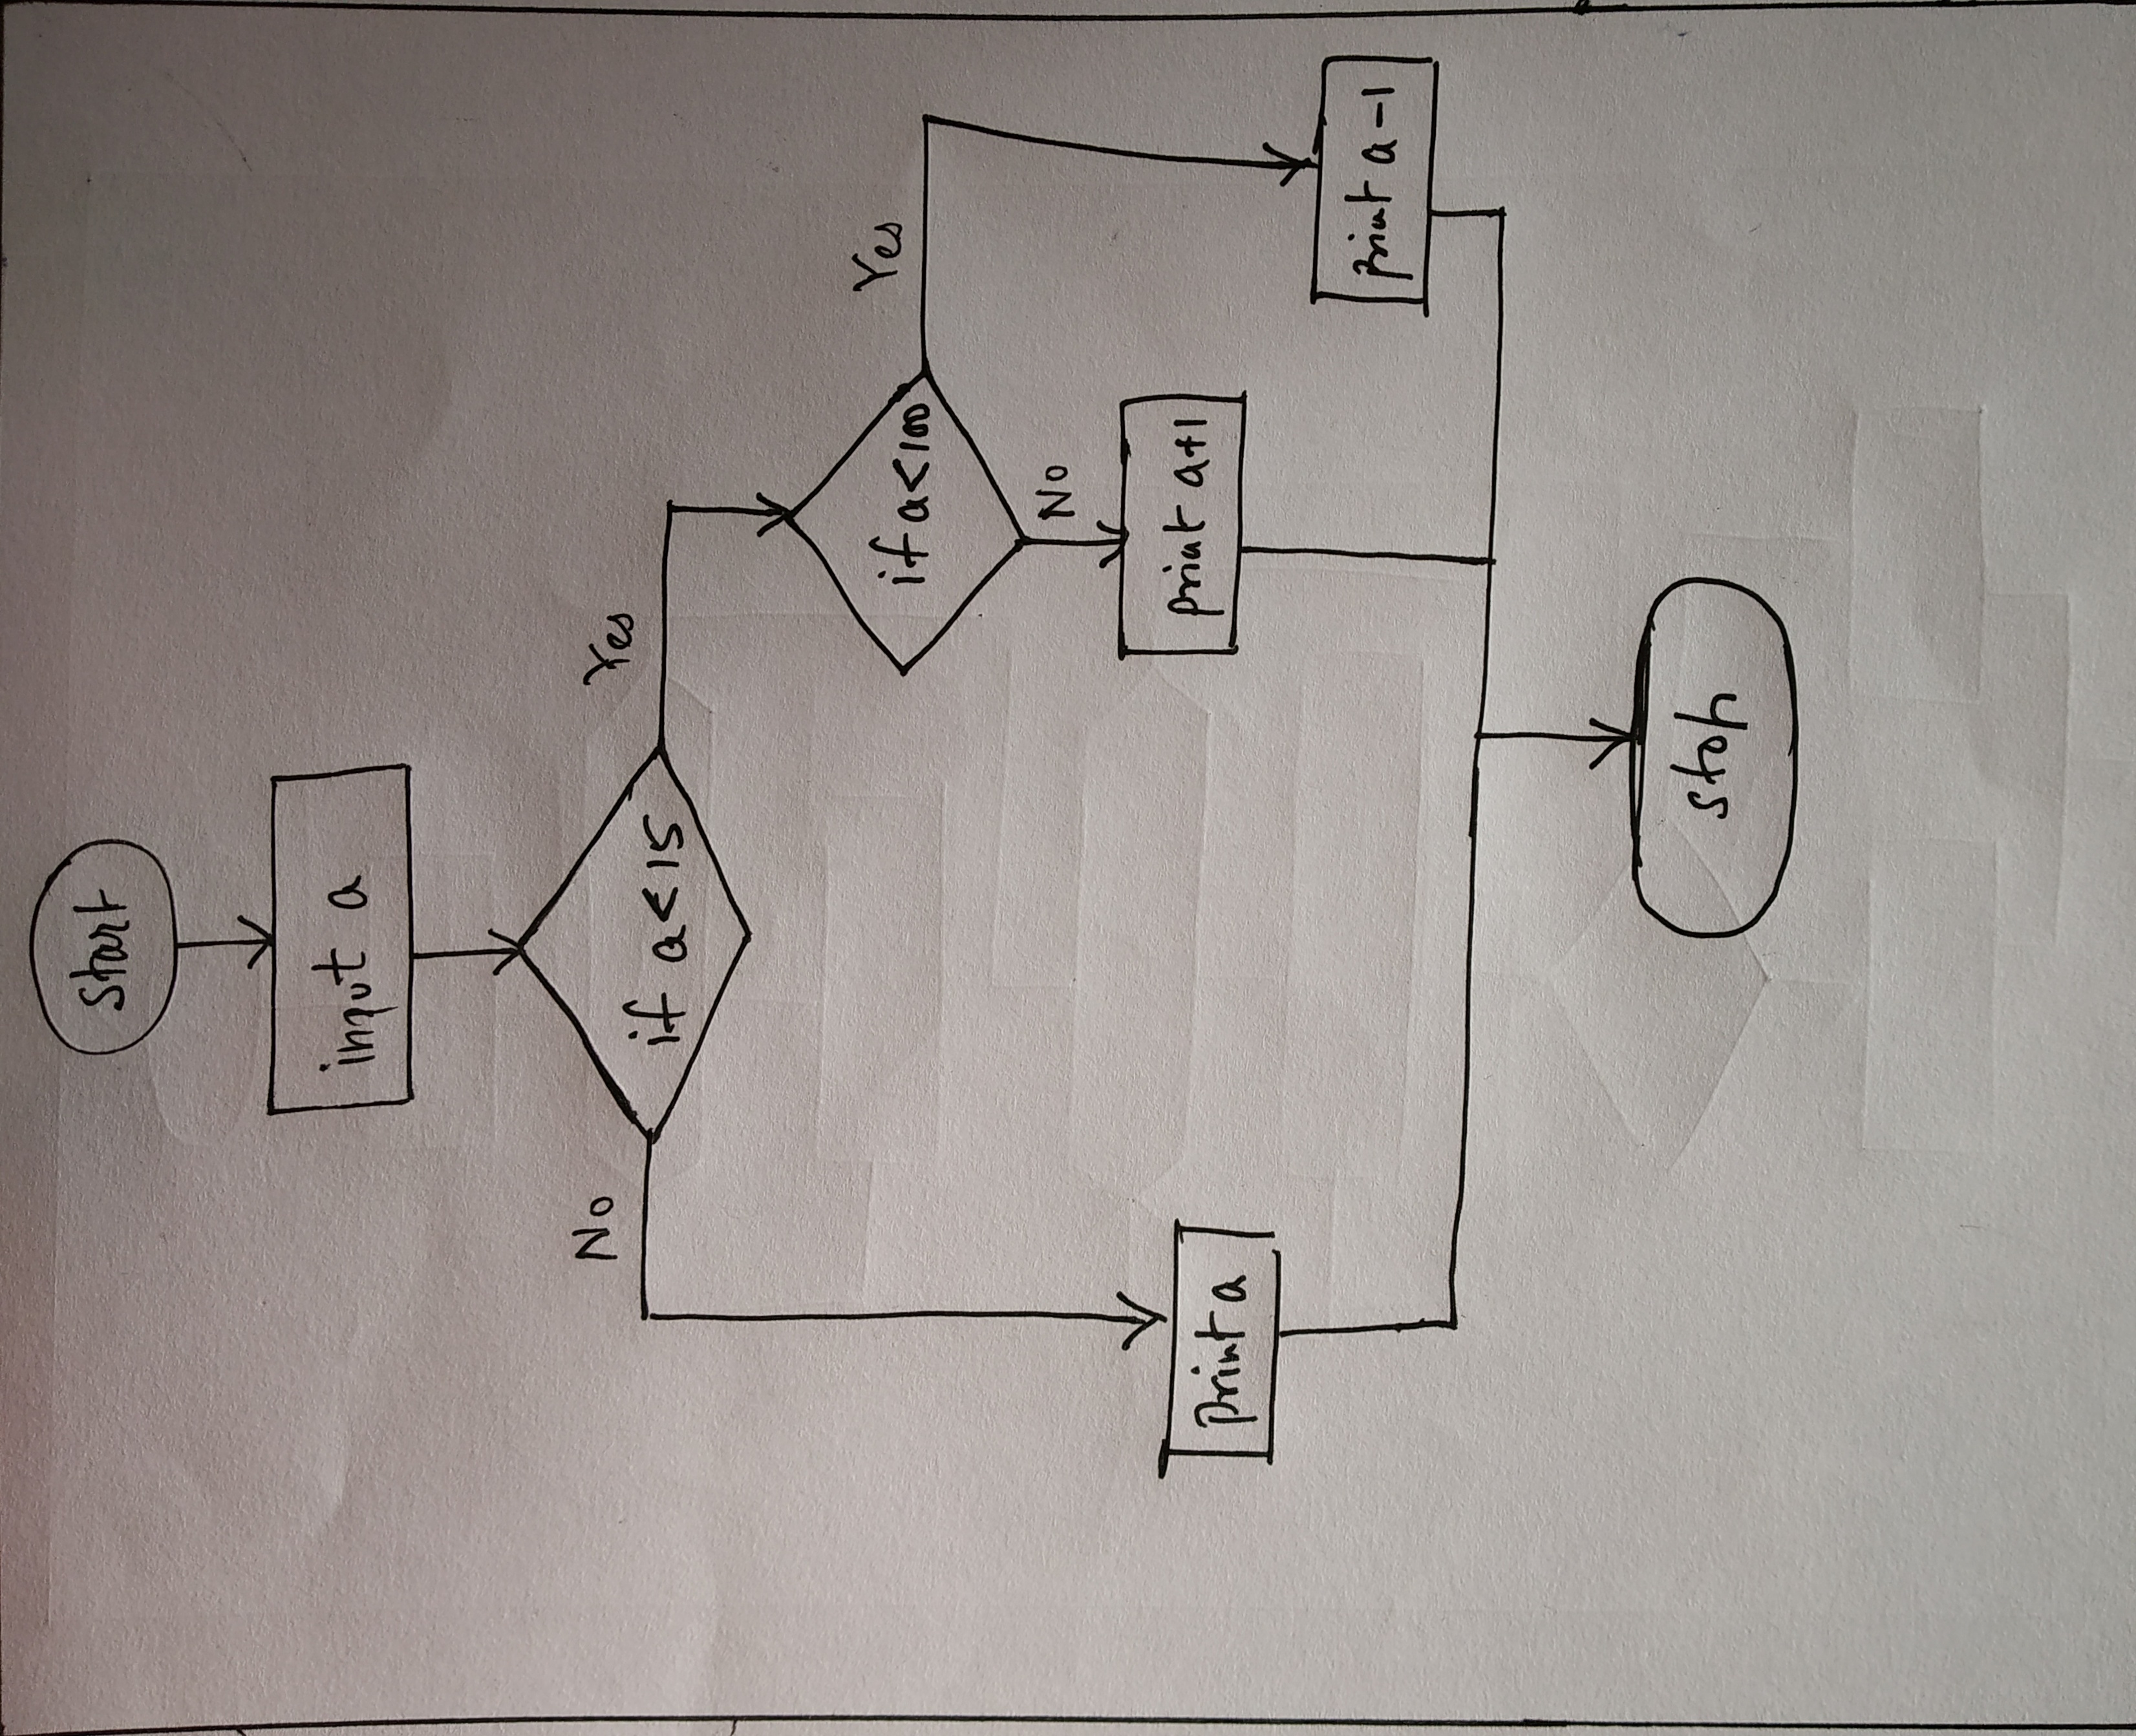 start
input a
if a < 15
No
Yes
if a < 100
Yes
No
print a
print a+1
print a-1
stop